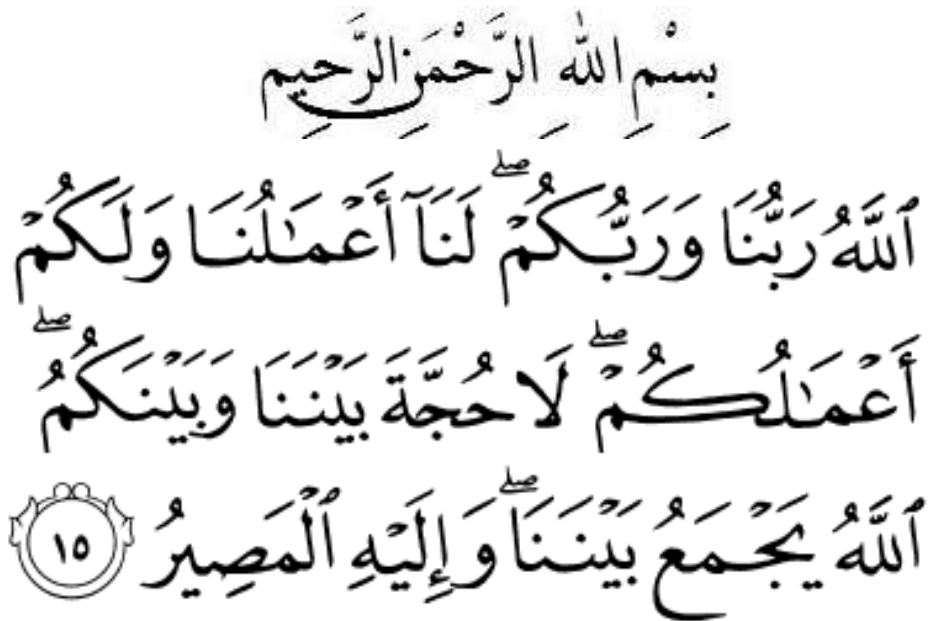 بِسْمِ اللهِ الرَّحْمَنِ الرَّحِيمِ
ٱللَّهُ رَبُّنَا وَرَبُّكُمْۖ لَنَآ أَعْمَٰلُنَا وَلَكُمْ
أَعْمَٰلُكُمْۖ لَا حُجَّةَ بَيْنَنَا وَبَيْنَكُمُۖ
ٱللَّهُ يَجْمَعُ بَيْنَنَاۖ وَإِلَيْهِ ٱلْمَصِيرُ ١٥